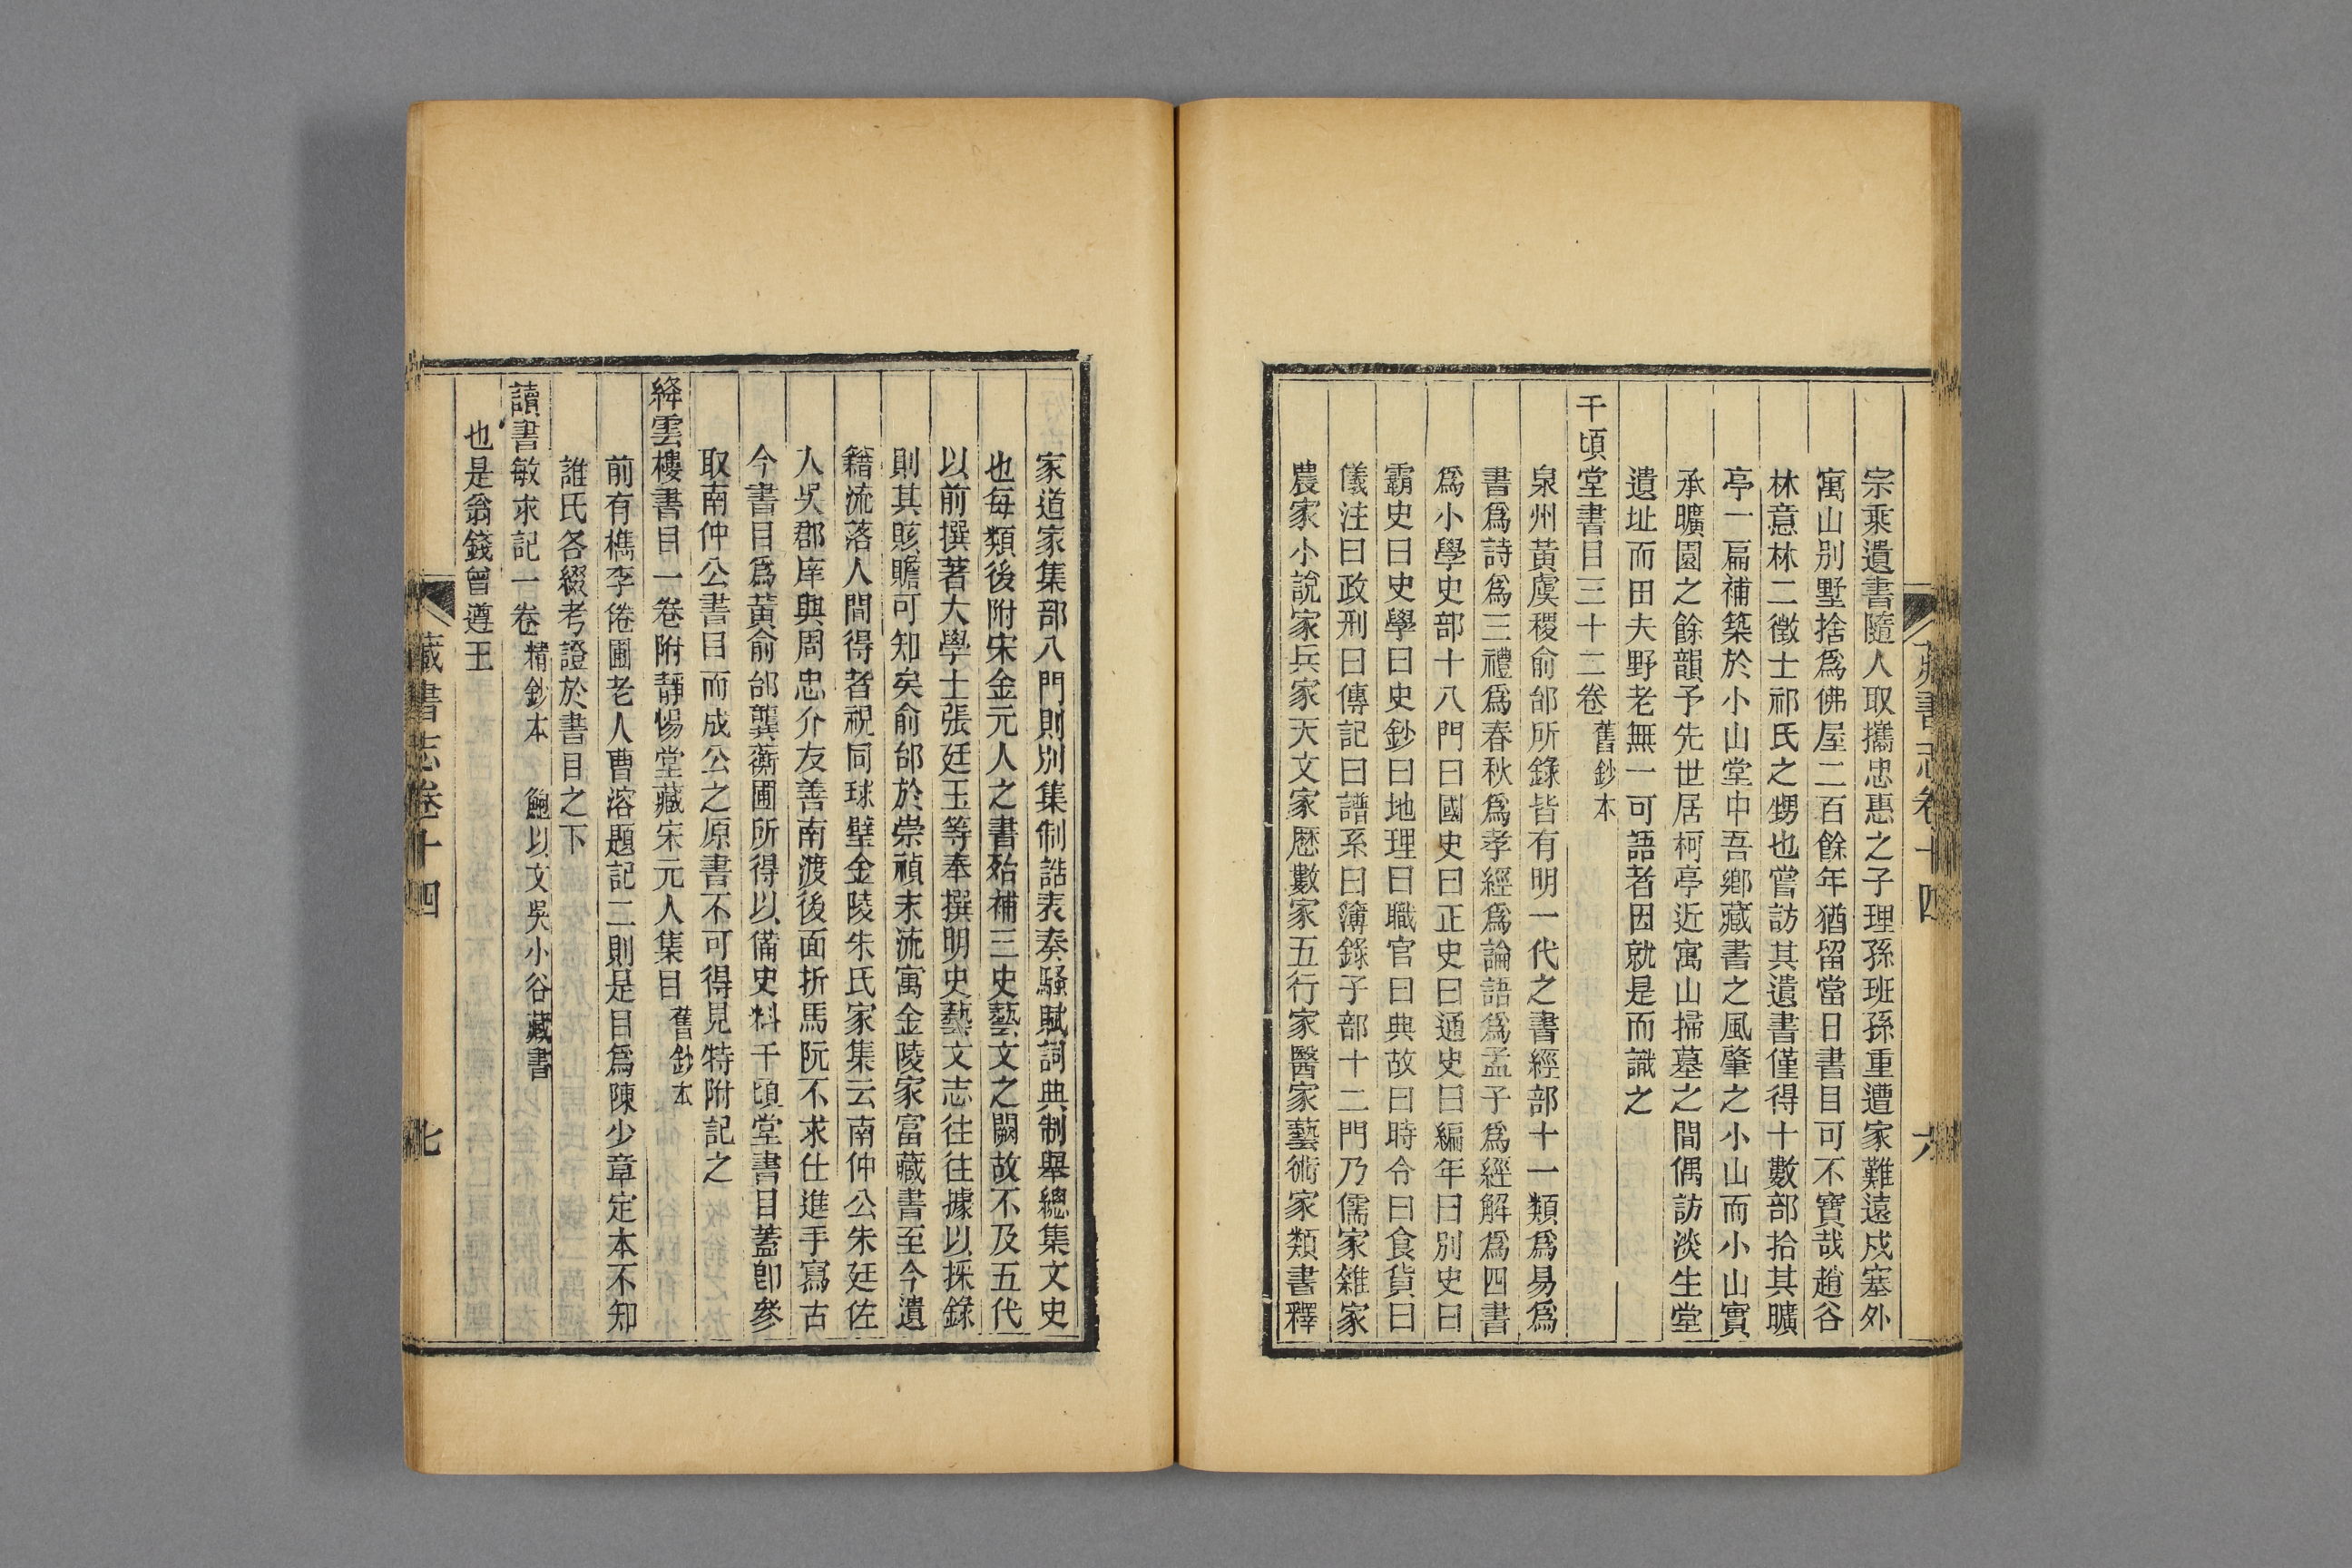 宗乘遺書隨人取攜忠惠之子理孫班孫重遭家難遠戍塞外
寓山別墅捨爲佛屋二百餘年猶留當日書目可不寶哉趙谷
林意林二徵士祁氏之甥也嘗訪其遺書僅得十數部拾其曠
亭一扁補築於小山堂中吾鄕藏書之風肇之小山而小山實
承曠園之餘韻予先世居柯亭近寓山掃墓之閒偶訪淡生堂
遺址而田夫野老無一可語者因就是而識之
千頃堂書目三十二卷 舊鈔本
泉州黃虞稷俞邰所錄皆有明一代之書經部十一類爲易爲
書爲詩爲三禮爲春秋爲孝經爲論語爲孟子爲經解爲四書
爲小學史部十八門曰國史曰正史曰通史曰編年曰別史曰
霸史曰史學曰史鈔曰地理曰職官曰典故曰時令曰食貨曰
儀注曰政刑曰傳記曰譜系曰簿錄子部十二門乃儒家雜家
農家小說家兵家天文家歷數家五行家醫家藝術家類書釋
藏書志卷十四 六
家道家集部八門則別集制誥表奏騷賦詞典制舉總集文史
也每類後附宋金元人之書殆補三史藝文之闕故不及五代
以前撰著大學士張廷玉等奉撰明史藝文志往往據以採錄
則其賅贍可知矣俞邰於崇禎末流寓金陵家富藏書至今遺
籍流落人閒得者視同球璧金陵朱氏家集云南仲公朱廷佐
人吳郡庠與周忠介友善南渡後面折馬阮不求仕進手寫古
今書目爲黃俞邰龔蘅圃所得以備史料千頃堂書目蓋卽參
取南仲公書目而成公之原書不可得見特附記之
絳雲樓書目一卷附靜惕堂藏宋元人集目 舊鈔本
前有檇李倦圃老人曹溶題記二則是目爲陳少章定本不知
誰氏各綴考證於書目之下
讀書敏求記一卷 精鈔本 鮑以文吳小谷藏書
也是翁錢曾遵王
藏書志卷十四 七